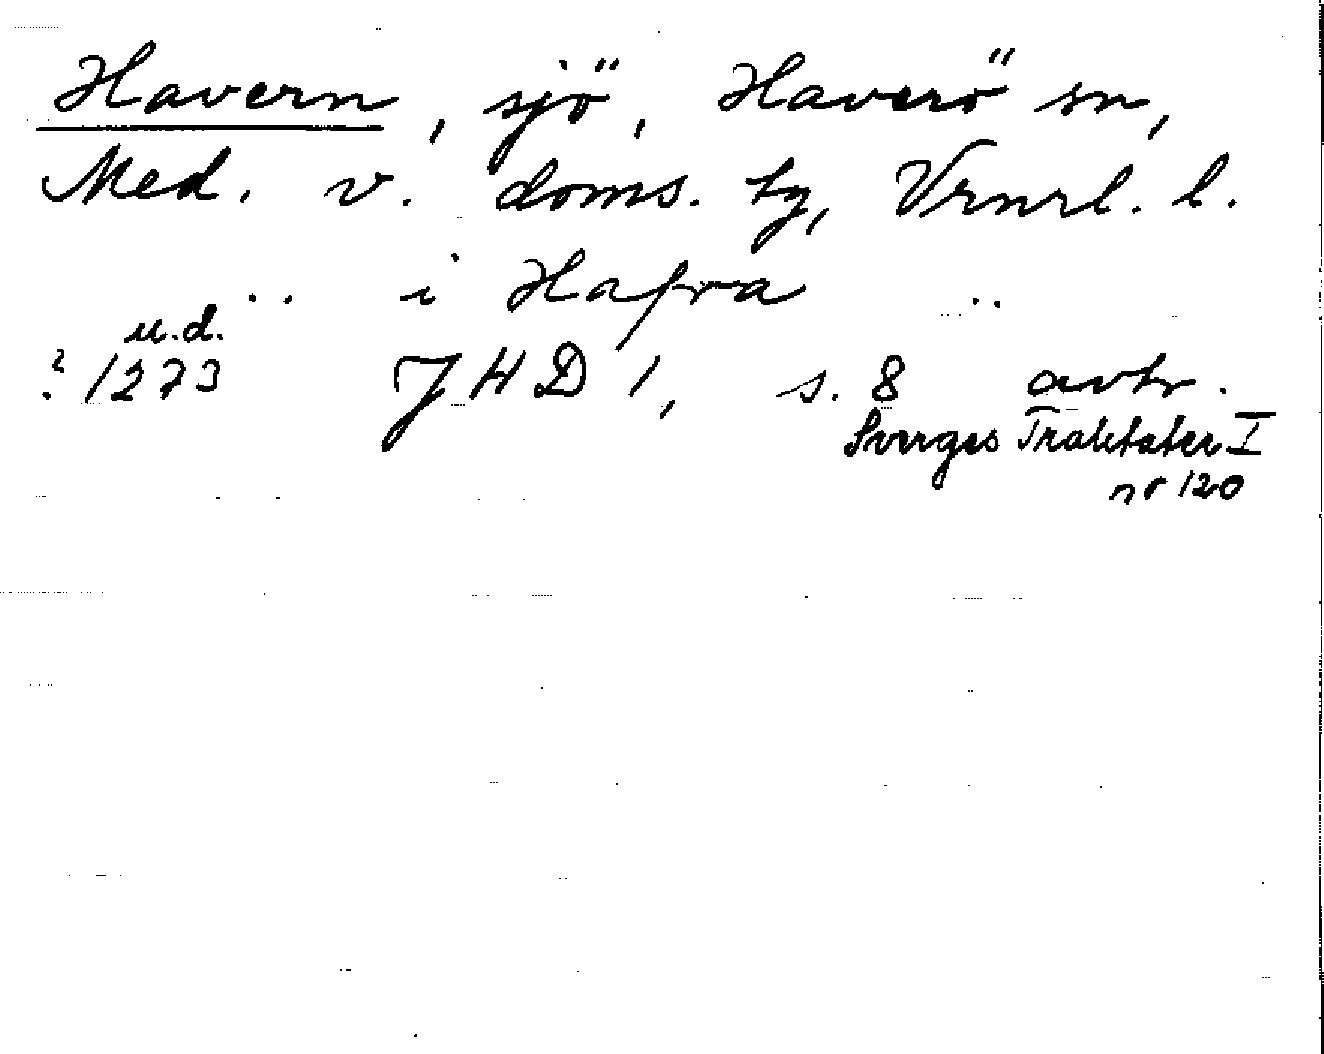 Havern, sjö, Haverö sn,
Med. v. doms. tg, Vrnrl. l.
.. i Hafra ..
u.d.
? 1273 JHD 1, s. 8 avtr.
Sverges Traktater I
nr 120